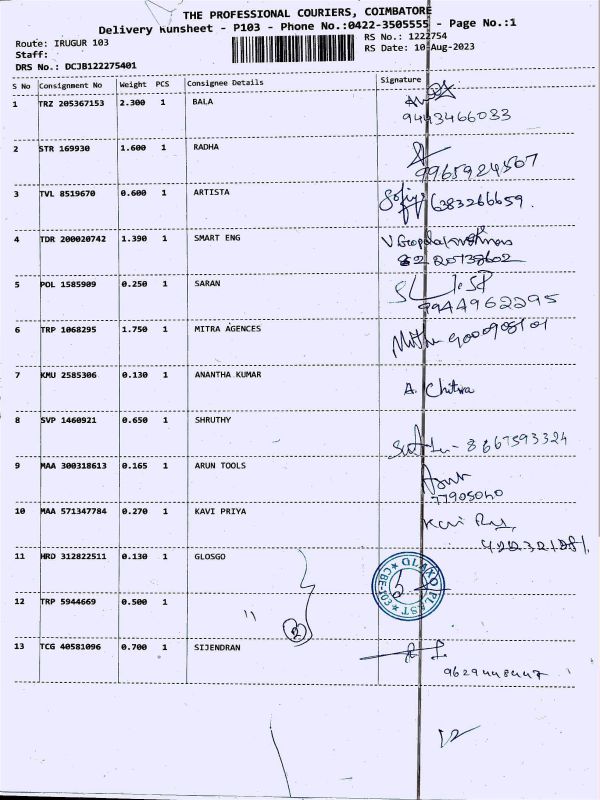 THE PROFESSIONAL COURIERS, COIMBATORE
Delivery Runsheet - P103 - Phone No.:0422-3505555 - Page No.:1
Route: IRUGUR 103 RS No.: 1222754
Staff: RS Date: 10-Aug-2023
DRS No.: DCJB122275401
S No Consignment No Weight PCS Consignee Details Signature
1 TRZ 205367153 2.300 1 BALA
9443466033
2 STR 169930 1.600 1 RADHA
9965924507
3 TVL 8519670 0.600 1 ARTISTA 6383266659.
4 TDR 200020742 1.390 1 SMART ENG
5 POL 1585909 0.250 1 SARAN
9944962295
6 TRP 1068295 1.750 1 MITRA AGENCES
7 KMU 2585306 0.130 1 ANANTHA KUMAR A. Chitra
8 SVP 1460921 0.650 1 SHRUTHY
8667593324
9 MAA 300318613 0.165 1 ARUN TOOLS
77905040
10 MAA 571347784 0.270 1 KAVI PRIYA Kavi
11 HRD 312822511 0.130 1 GLOSGO
12 TRP 5944669 0.500 1 " 2
13 TCG 40581096 0.700 1 SIJENDRAN
9629448447
12